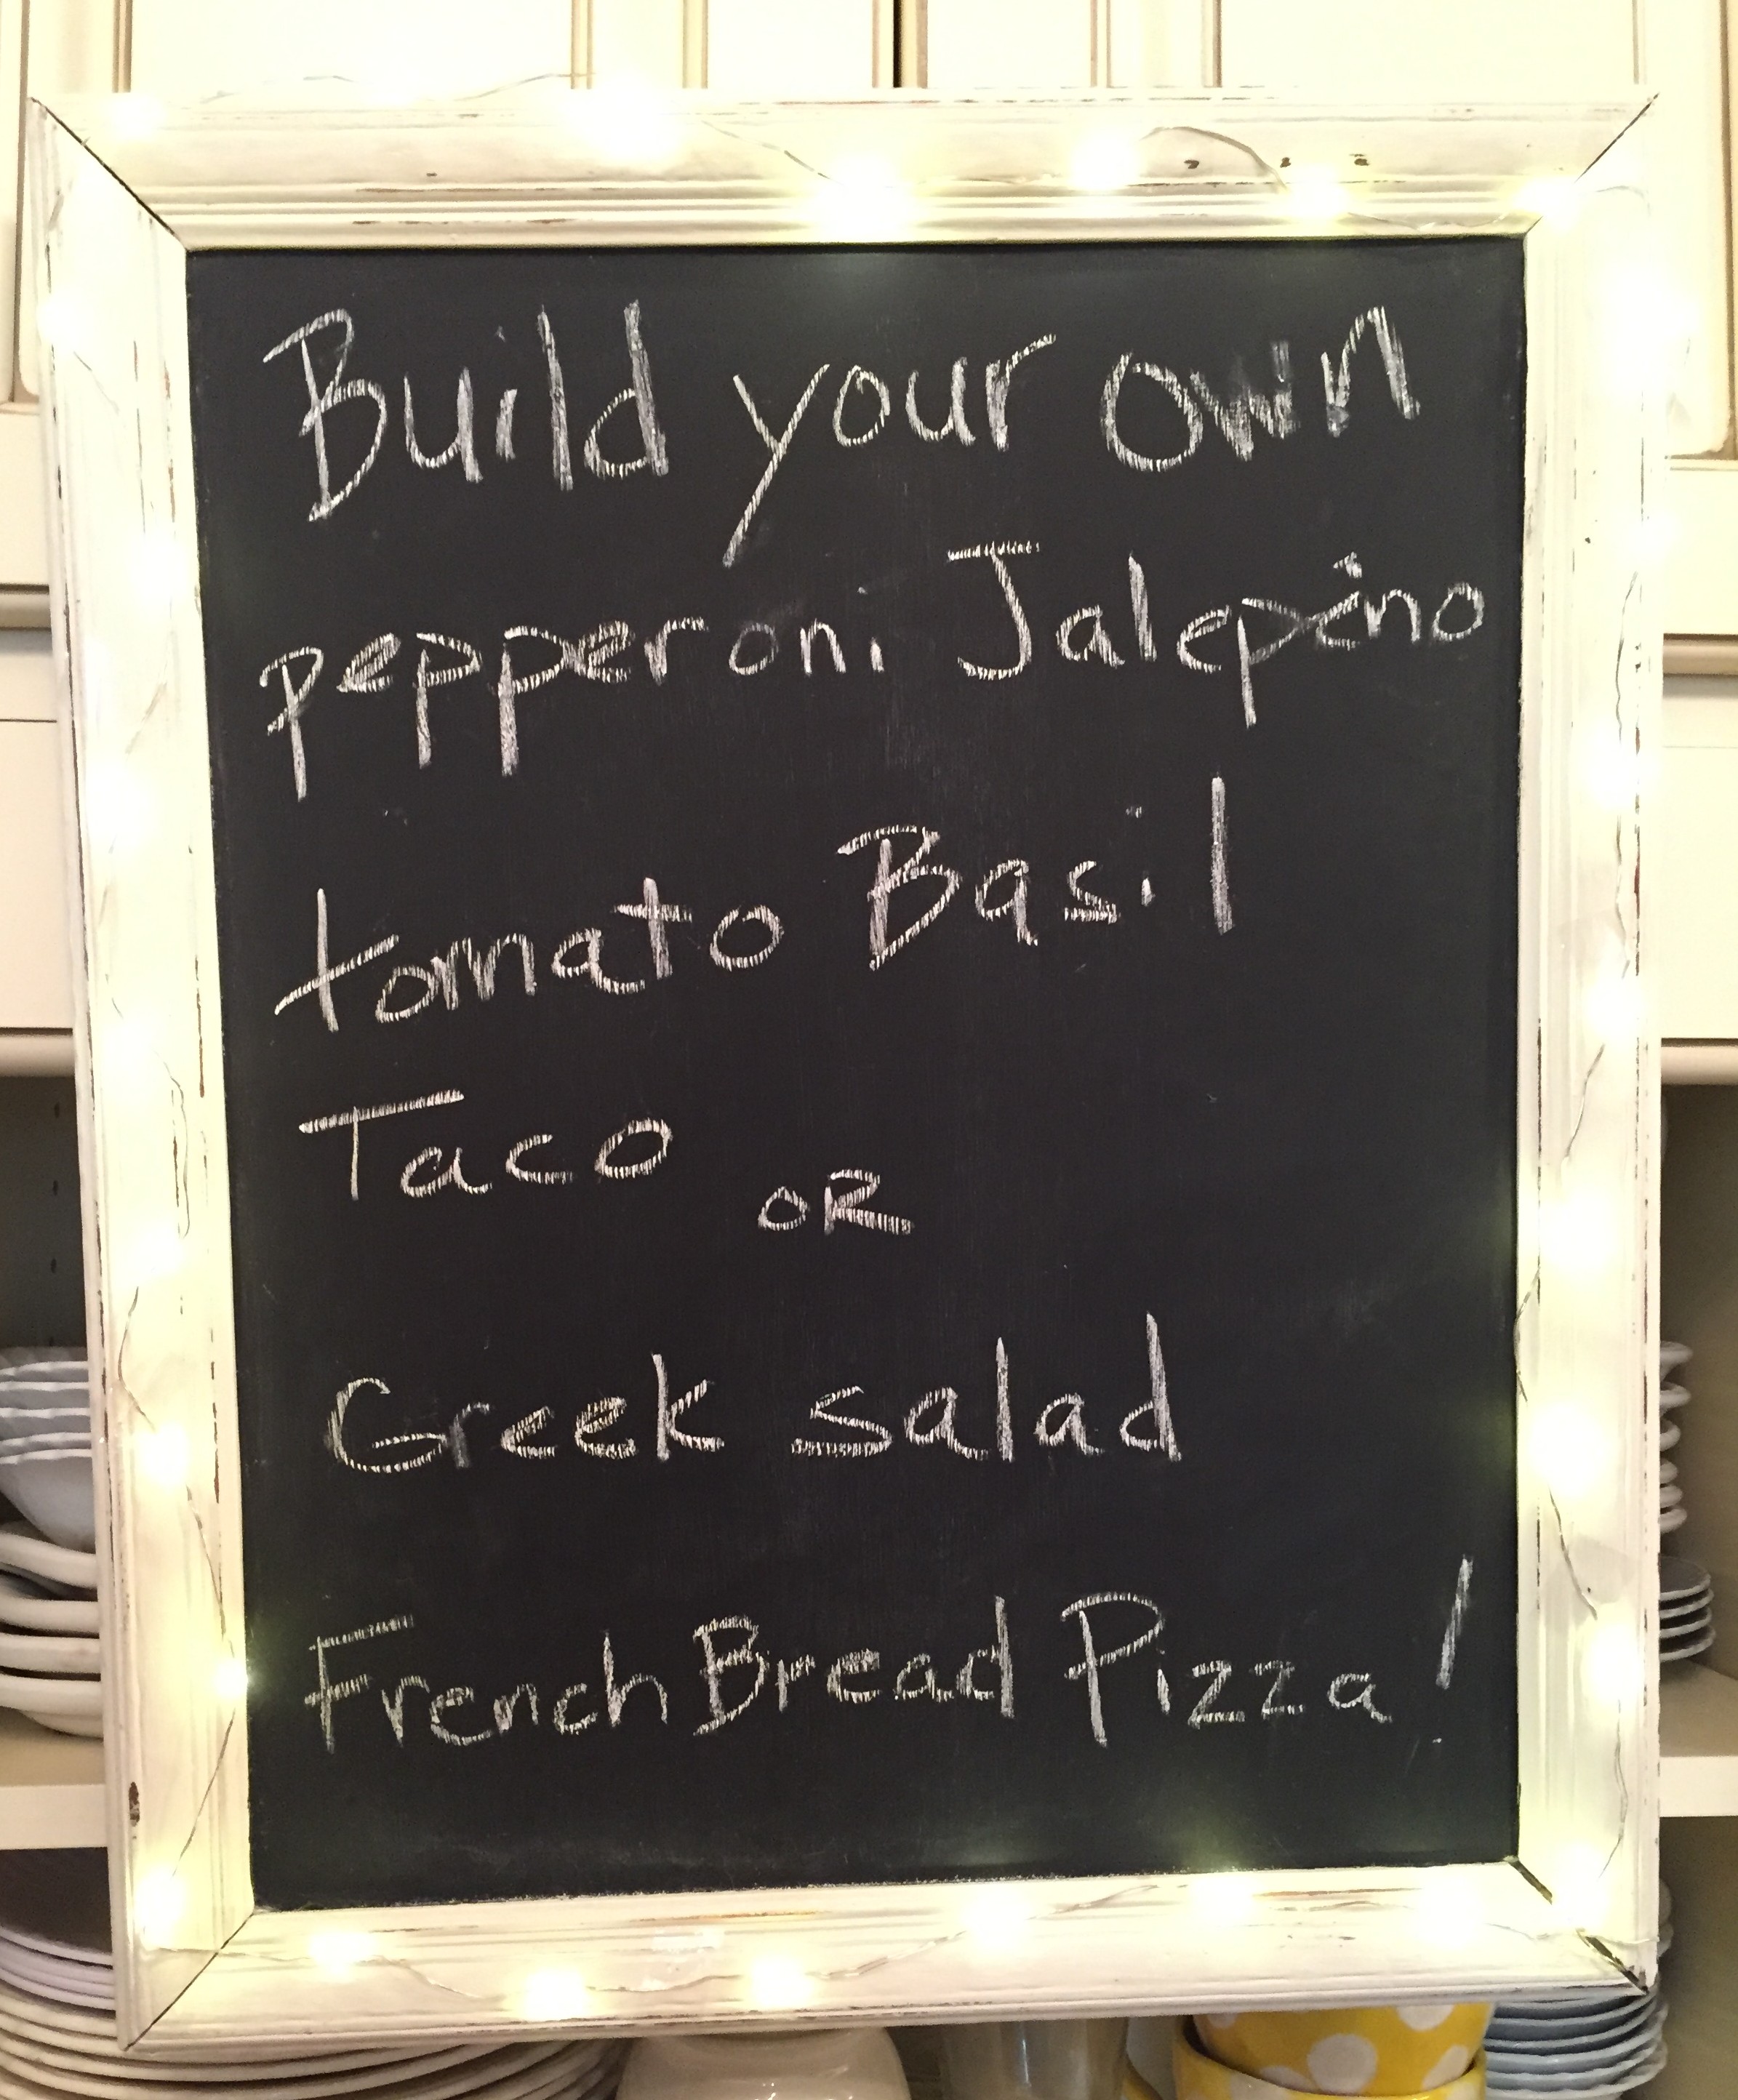 Build your own
pepperoni Jalepeno
tomato Basil
Taco
OR
Greek salad
French Bread Pizza!